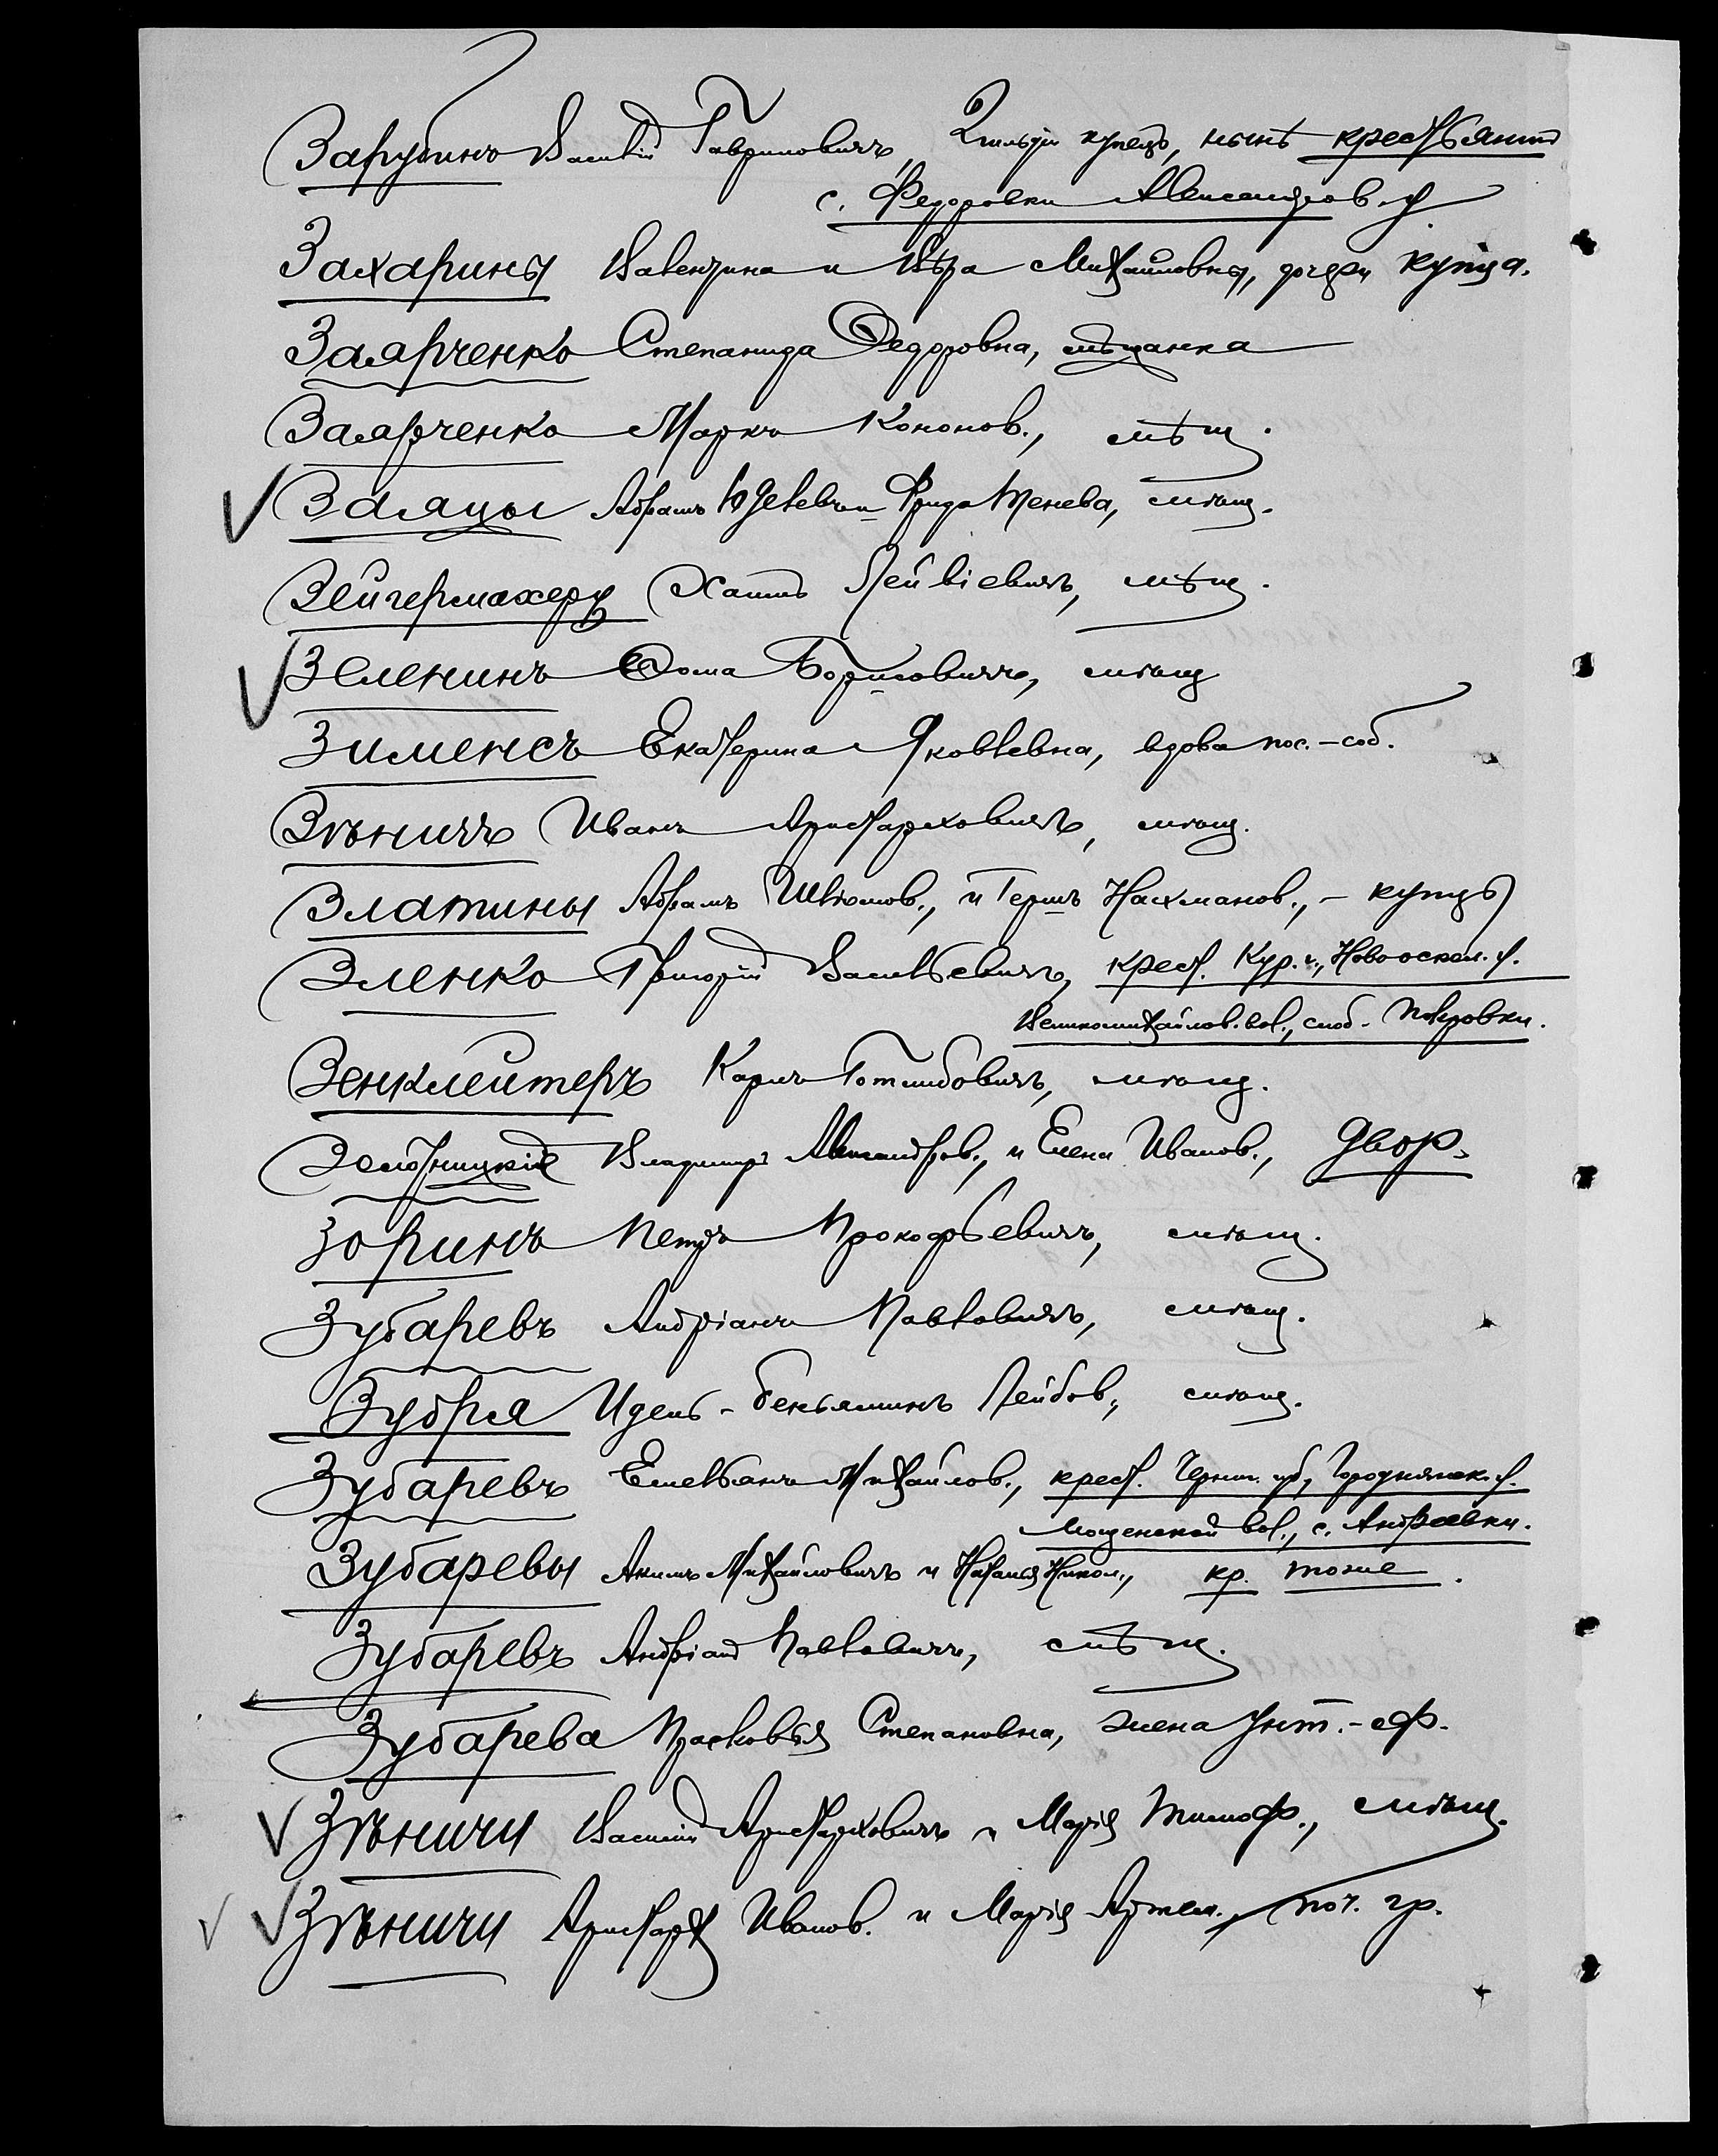 Зарубинъ Василій Гавриловичъ, 2 гильдіи купецъ, нынѣ крестьянинъ
с. Федоровки Александров. у.
Захарины Валентина и Вѣра Михайловны, дочери купца.
Заярченко Степанида Федоровна, мѣщанка
Заярченко Маркъ Кононов., мѣщ.
✓ Заяцы Абрамъ Юделевъ и Фрида Менева, мѣщ.
Зейгермахеръ Хаимъ Лейвіевичъ, мѣщ.
✓ Зеленинъ Фома Борисовичъ, мѣщ
Зименсъ Екатерина Яковлевна, вдова пос.-соб.
Зѣничъ Иванъ Аристарховичъ, мѣщ.
Златины Абрамъ Шлiомов., и Гершъ Нахманов., - купцы
Зленко Григорій Васильевичъ, крест. Кур. г., Новооскол. у.
Великомихайлов. вол., слоб. Покровки.
Зенклейтеръ Карлъ Готлибовичъ, мѣщ.
Владимиръ Александров., и Елена Иванов., двор.
Зоринъ Петръ Прокофьевичъ, мѣщ.
Зубаревъ Андріанъ Павловичъ, мѣщ.
Зубря Идель-Беньяминъ Лейбов., мѣщ.
Зубаревъ Емельянъ Михайлов., крест. Черниг. губ., Городнянск. у.
вол., с. Андреевки.
Зубаревы Акимъ Михайловичъ и Наталья Никол., кр. тоже.
Зубаревъ Андріанъ Павловичъ, мѣщ.
Зубарева Прасковья Степановна, жена унт.-оф.
✓ Зѣничи Василій Аристарховичъ и Марія Тимоф., мѣщ.
✓ ✓ Зѣничи Аристархъ Иванов. и Марія Артем., поч. гр.